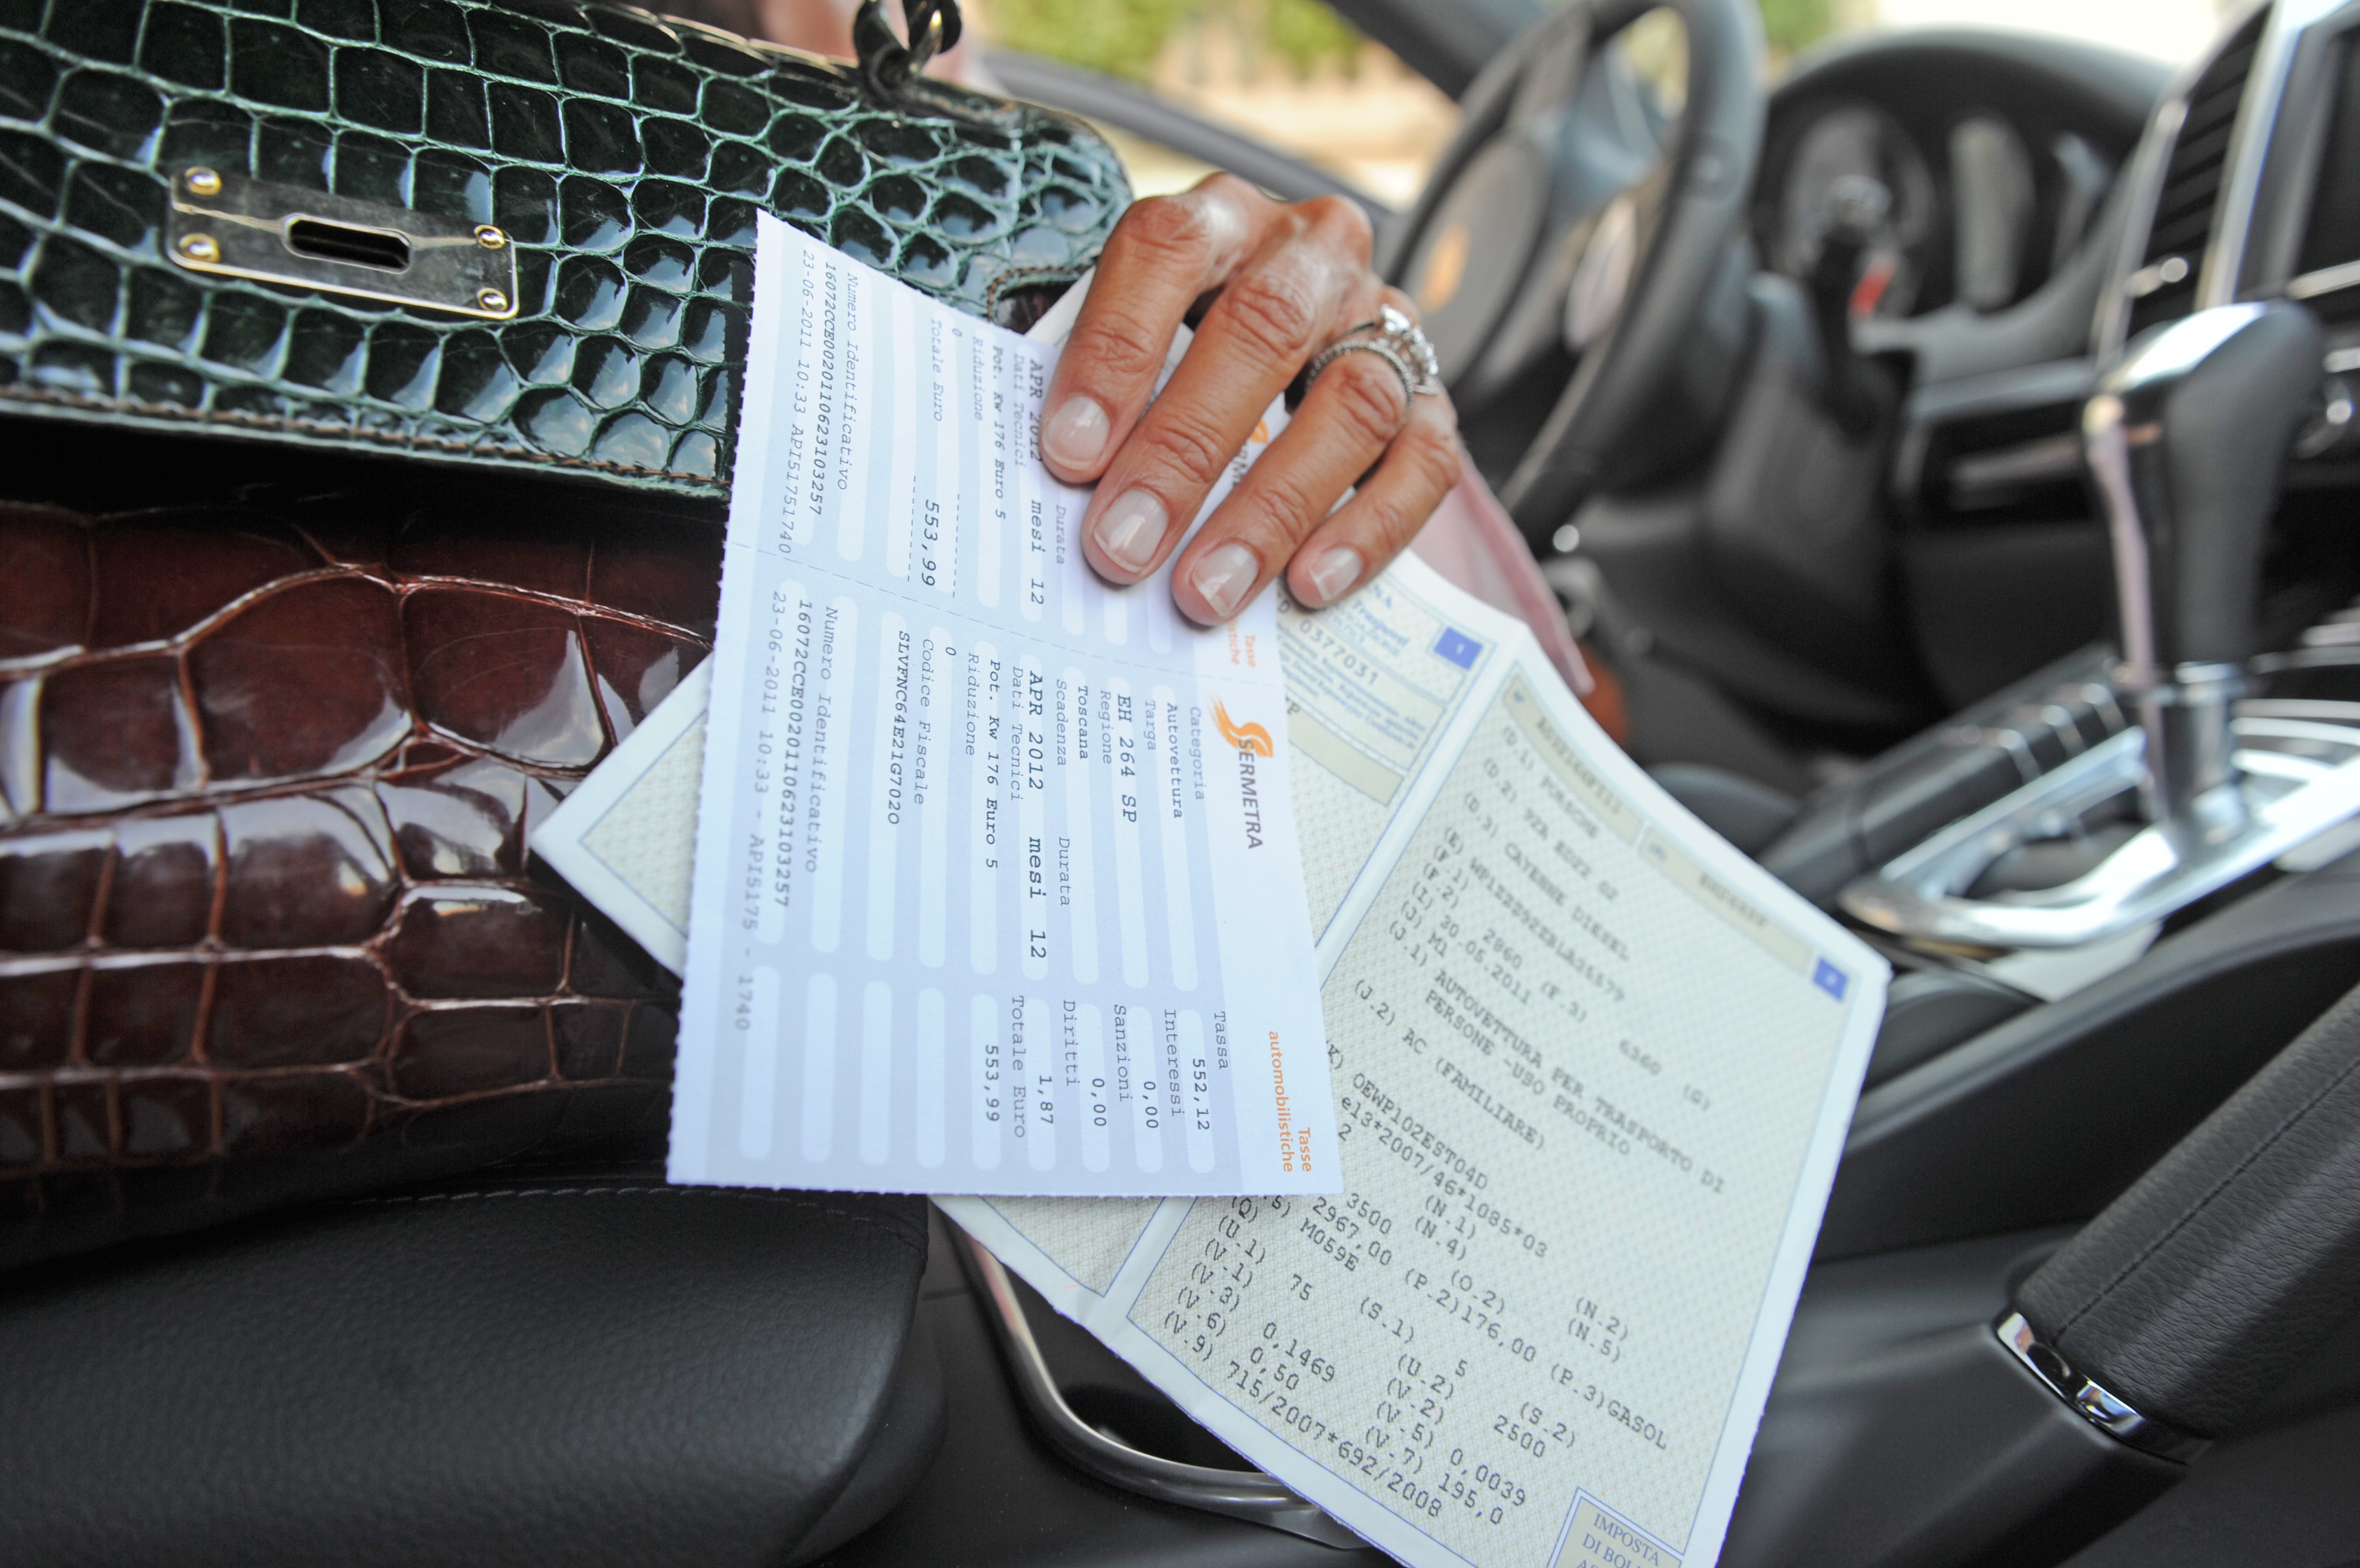 Numero Identificativo
16072CCE0020110623103257
23-06-2011 10:33 API51751740
APR 2012 mesi 12
Durata
Dati Tecnici
Pot. Kw 176 Euro 5
Riduzione
0
Totale Euro
553,99
SERMETRA
Tasse
automobilistiche
Categoria
Autovettura
Targa
EH 264 SP
Regione
Toscana
Scadenza Durata
APR 2012 mesi 12
Dati Tecnici
Pot. Kw 176 Euro 5
Riduzione
0
Codice Fiscale
SLVFNC64E21G702O
Numero Identificativo
16072CCE0020110623103257
23-06-2011 10:33 - API5175 - 1740
Tassa
552,12
Interessi
0,00
Sanzioni
0,00
Diritti
1,87
Totale Euro
553,99
Tasse
0377031
(D.1) PORSCHE
(D.2) 92A
(D.3) CAYENNE DIESEL
(E)
(F.1)
(F.2) 2860 (F.3) 6360 (G)
(I) 30.05.2011
(J) M1
(J.1) AUTOVETTURA PER TRASPORTO DI
PERSONE -USO PROPRIO
(J.2) AC (FAMILIARE)
OEWP102EST04D
e13*2007/46*1085*03
2 (N.1) (N.2)
3500 (N.4) (N.5)
2967,00 (O.2)
M059E (P.2)176,00 (P.3)GASOL
(Q) (S.1) 5 (S.2)
(U.1) 75 (U.2) 2500
(V.1) (V.2)
(V.3) 0,1469 (V.5) 0,0039
(V.6) 0,50 (V.7) 195,0
(V.9) 715/2007*692/2008
IMPOSTA